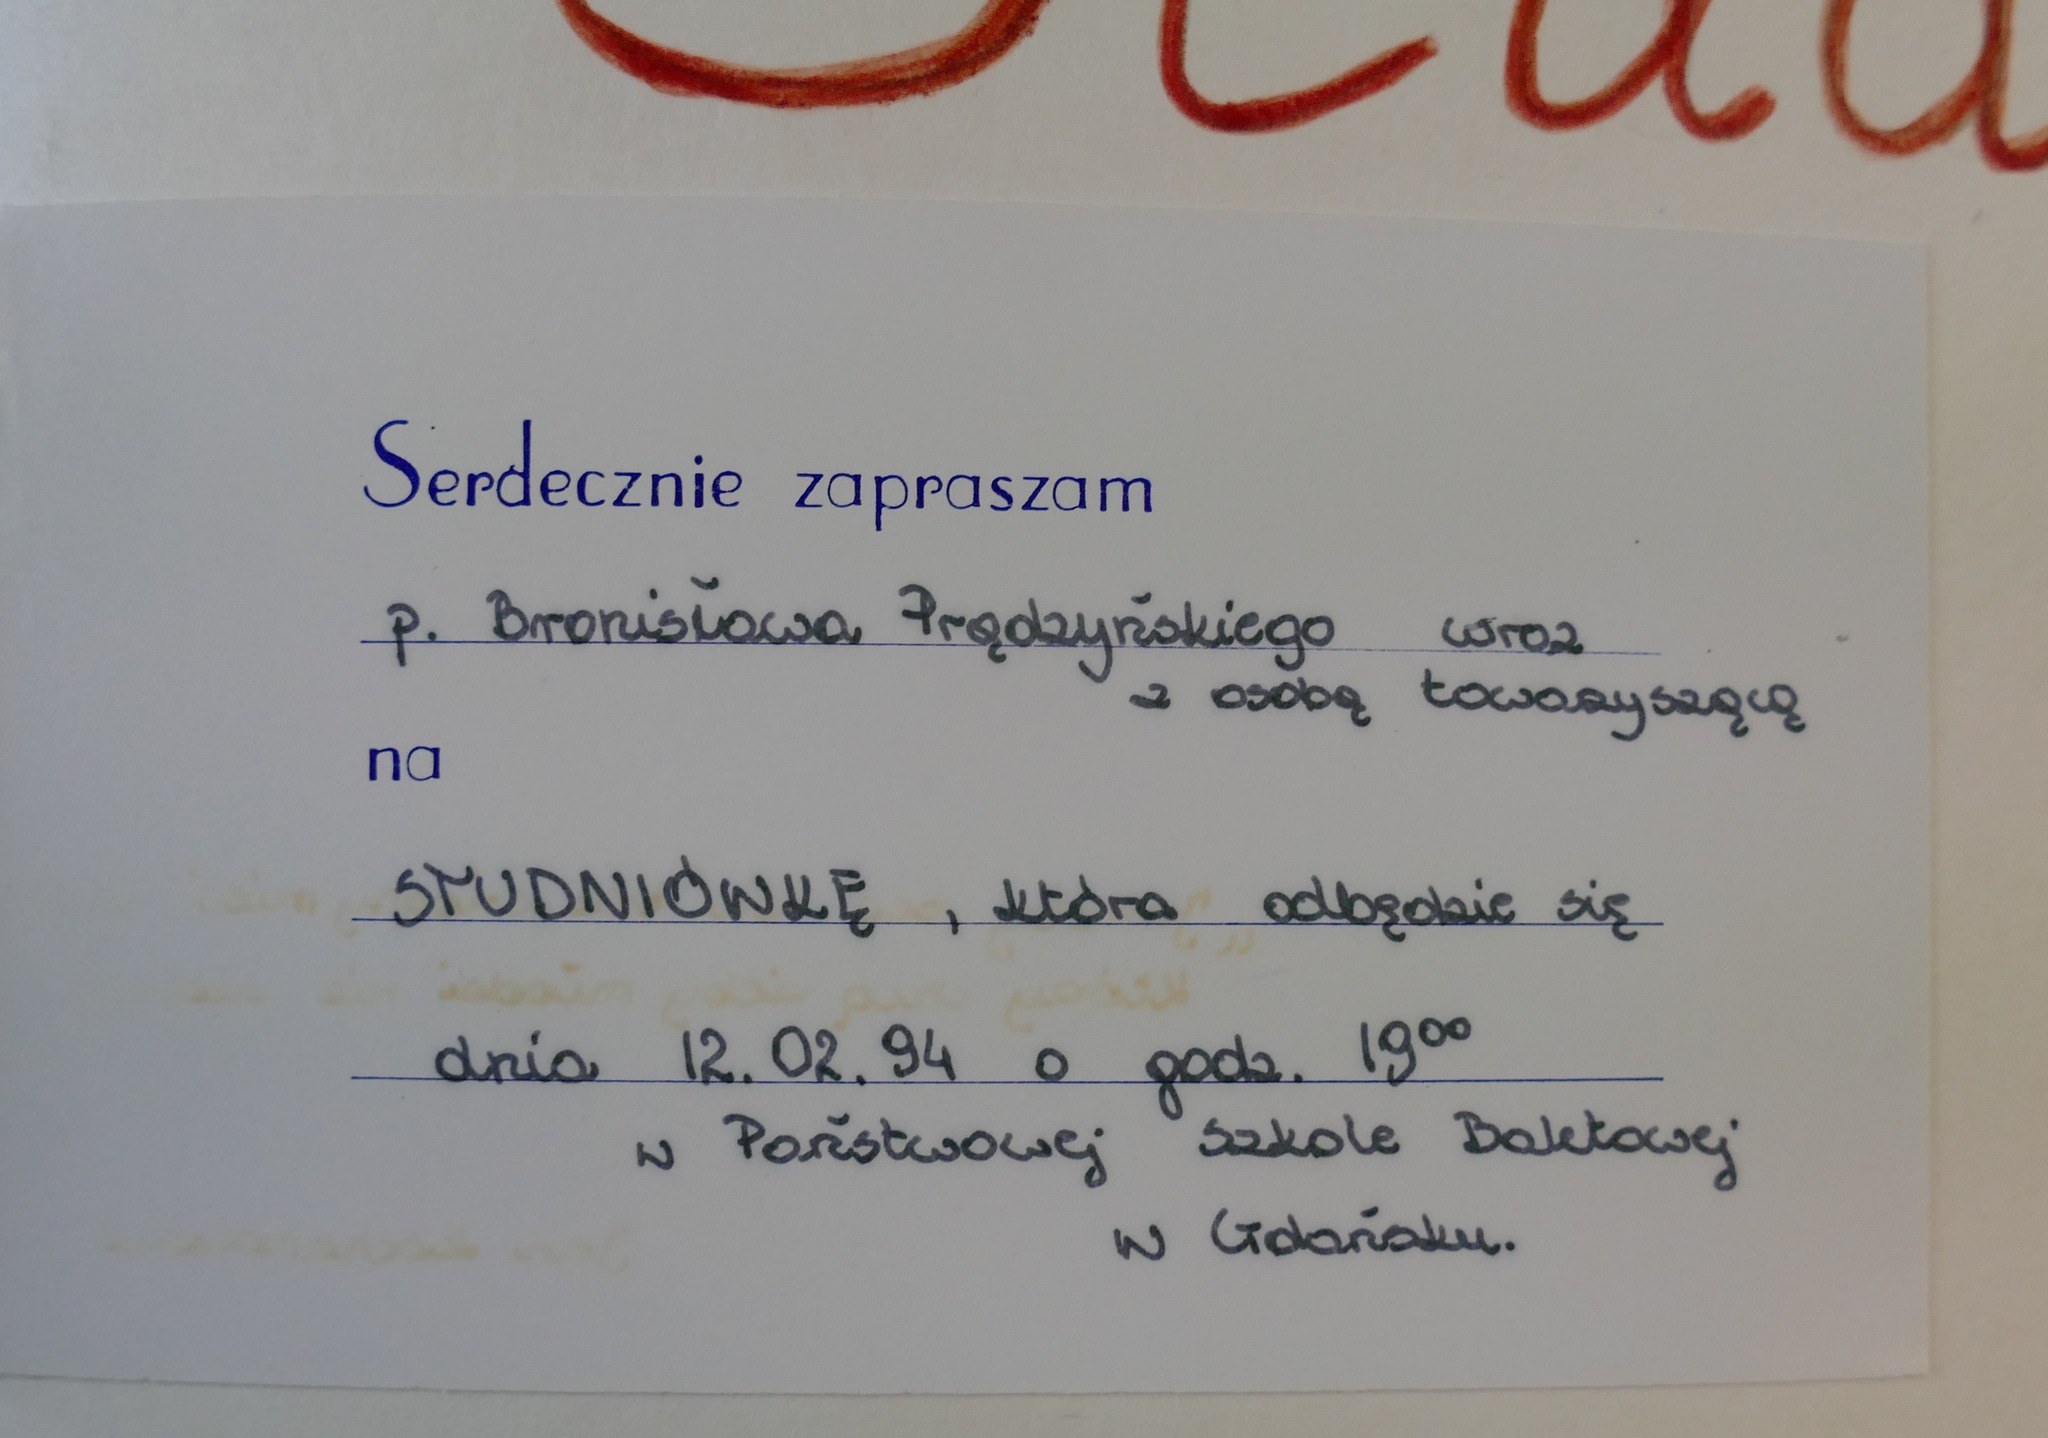 Serdecznie zapraszam
p. Bronisława Prędzyńskiego wraz
z osobą towarzyszącą
na
STUDNIÓWKĘ, która odbędzie się
dnia 12.02.94 o godz. 19⁰⁰
w Państwowej Szkole Baletowej
w Gdańsku.